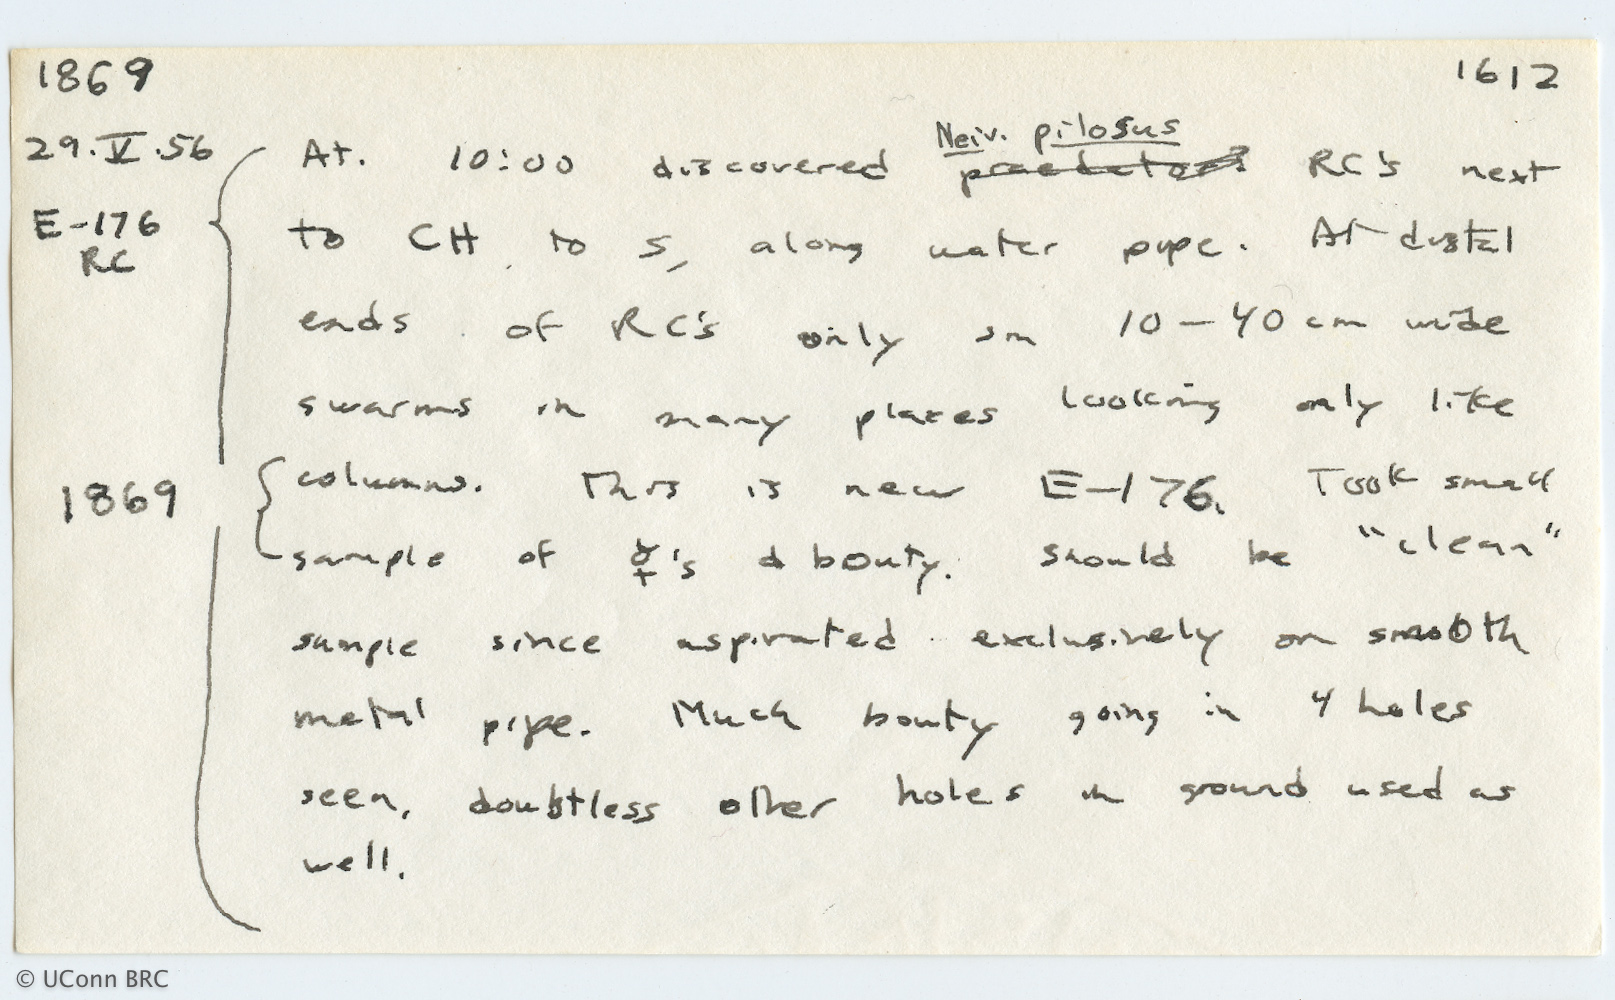 1869 1612
Neiv. pilosus
29.V.56 At. 10:00 discovered RC's next
E-176 to CH to S, along water pipe. At distal
RC
ends of RC's only sm 10-40 cm wide
swarms in many places looking only like
1869 columns. This is new E-176. Took small
sample of ☿'s & booty. Should be "clean"
sample since aspirated exclusively on smooth
metal pipe. Much booty going in 4 holes
seen, doubtless other holes in ground used as
well.
© UConn BRC